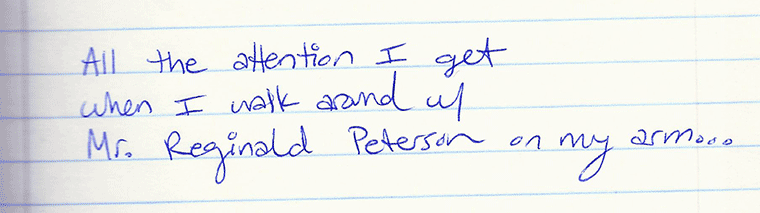 All the attention I get
when I walk around w/
Mr. Reginald Peterson on my arm...